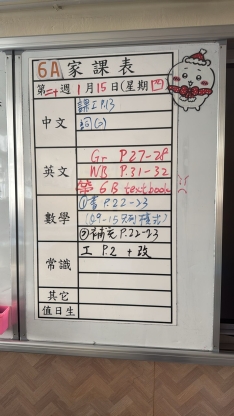 6A 家課表
第二十週 1月15日(星期四)
中文
課工 P.13
詞(2)
英文
Gr P.27-28
WB P.31-32
帶 6B textbook
數學
①書 P.22-23
②補充 P.22-23
常識
工 P.2 + 改
其它
值日生